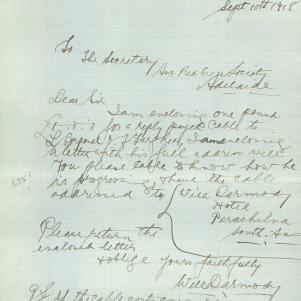 Sept 10th 1918
To
The Secretary
Aus Red Cross Society
Adelaide
Dear Sir
I am enclosing one pound
£1.1.1 for a reply payed cable to
L Corporal J. I am enclosing
a letter with his full address
You please cable to know how he
is progressing & have the cable
addressed to Will Dermody
Hotel
Parachilna
South Aus
Please return the
enclosed letter
& oblige yours faithfully
Will Dermody
P.S. If the cable costs
6351